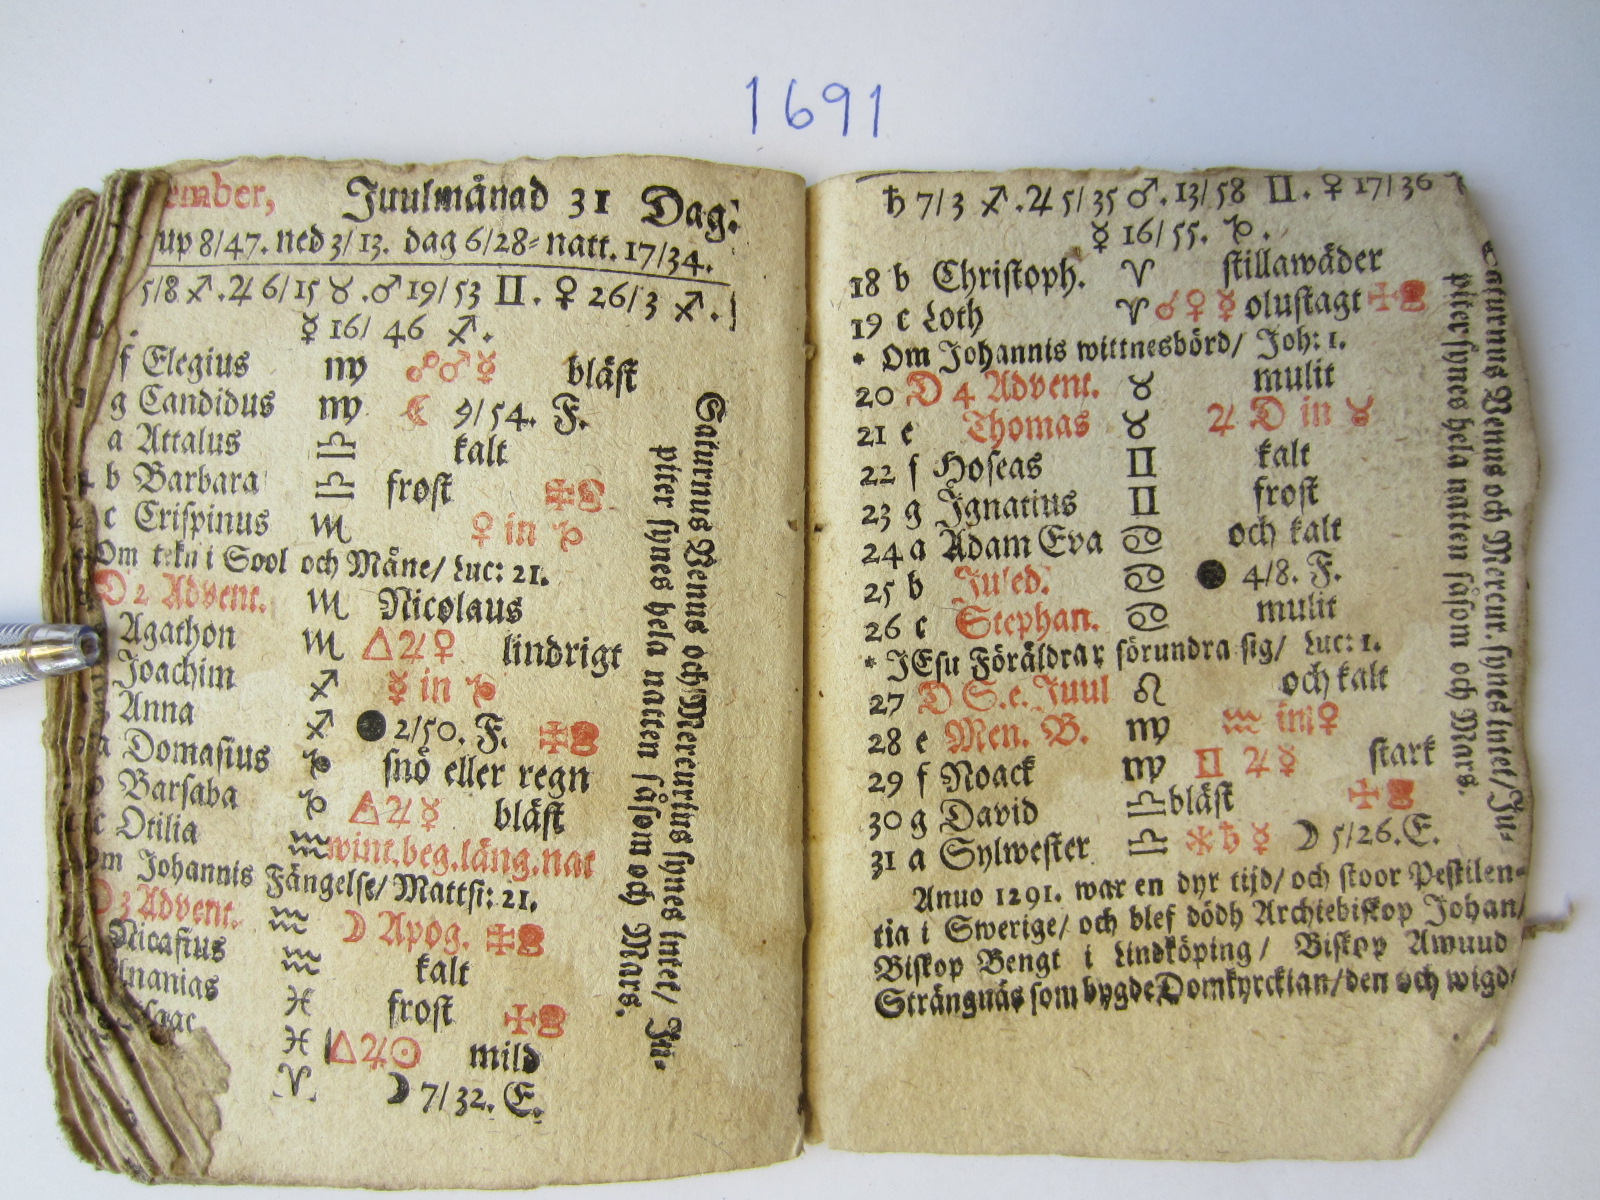 1691
ember, Juulmånad 31 Dag.
up 8/47. ned 3/13. dag 6/28⸗ natt. 17/34.
5/8 ♐. ♃ 6/15 ♉. ♂ 19/53 ♊. ♀ 26/3 ♐.
☿ 16/46 ♐.
f Elegius ♍ ☍ ♂ ☿ bläst
g Candidus ♍ ☾ 9/54. F.
a Attalus ♎ kalt
b Barbara ♎ frost
c Crispinus ♏ ♀ in ♑
Om tekn i Sool och Måne/ Luc: 21.
D 2 Advent. ♏ Nicolaus
Agathon ♏ △ ♃ ♀ lindrigt
Joachim ♐ ☿ in ♑
Anna ♐ ● 2/50. F.
Domasius ♑ snö eller regn
Barsaba ♑ △ ♃ ☿ bläst
Otilia ♒ wint.beg.läng.nat
m Johannis Fängelse/ Matthi: 21.
D 3 Advent. ♒ ☽ Apog.
Nicasius ♒ kalt
nanias ♓ frost
♓ △ ♃ ☉ mild
♈ ☽ 7/32. E.
Saturnus Venus och Mercurius synes intet/ Ju-
piter synes hela natten såsom och Mars.
♄ 7/3 ♐. ♃ 5/35 ♂. 13/58 ♊. ♀ 17/36
☿ 16/55. ♑.
18 b Christoph. ♈ stillawäder
19 c Loth ♈ ♂ ♀ ☿ olustagt
* Om Johannis wittnesbörd/ Joh: 1.
20 D 4 Advent. ♉ mulit
21 e Thomas ♉ ♃ D in ♉
22 f Hoseas ♊ kalt
23 g Ignatius ♊ frost
24 a Adam Eva ♋ och kalt
25 b Juled. ♋ ● 4/8. F.
26 c Stephan. ♋ mulit
* JEsu Föräldrar förundra sig/ Luc: 1.
27 D S.e. Juul ♌ och kalt
28 e Men. B. ♍ ♒ im ♀
29 f Noack ♍ ♊ ♃ ☿ stark
30 g David ♎ bläst
31 a Sylwester ♎ ⚹ ♄ ☿ ☽ 5/26. E.
Anno 1291. war en dyr tijd/ och stoor Pestilen-
tia i Swerige/ och blef dödh Archiebiskop Johan/
Biskop Bengt i Lindköping/ Biskop Amund
Strängnäs som bygde Domkyrckian/ den och wigd⸗
Saturnus Venus och Mercur. synes intet/ Ju-
piter synes hela natten såsom och Mars.